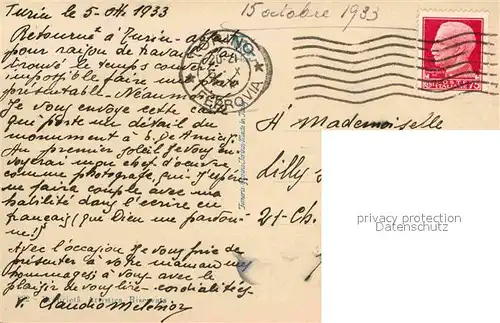 Turin le 5-ott 1933
15 octobre 1933
Retournent à Turin-
pour raison de travail
trouvé le temps
impossible faire une
présentable - Néanmoins
Je vous envoye cette
qui porte un détail du
monument à E. De Amicis
Au premier soleil je vous en
voyerai un chef d'oeuvre
comme photografe, qui j'espère
me faira couple avec ma
habilité dans l'écrire en
français (que Dieu me pardon-
ne!!)
Avec l'occasion je vous prie de
présenter à votre maman mes
hommages à vous avec le
plaisir de vous lire - cordialités
V. Claudio
Artistica Riservata
TORINO
FERROVIA
A Mademoiselle
Lilly
21-Ch.
privacy protection
Datenschutz